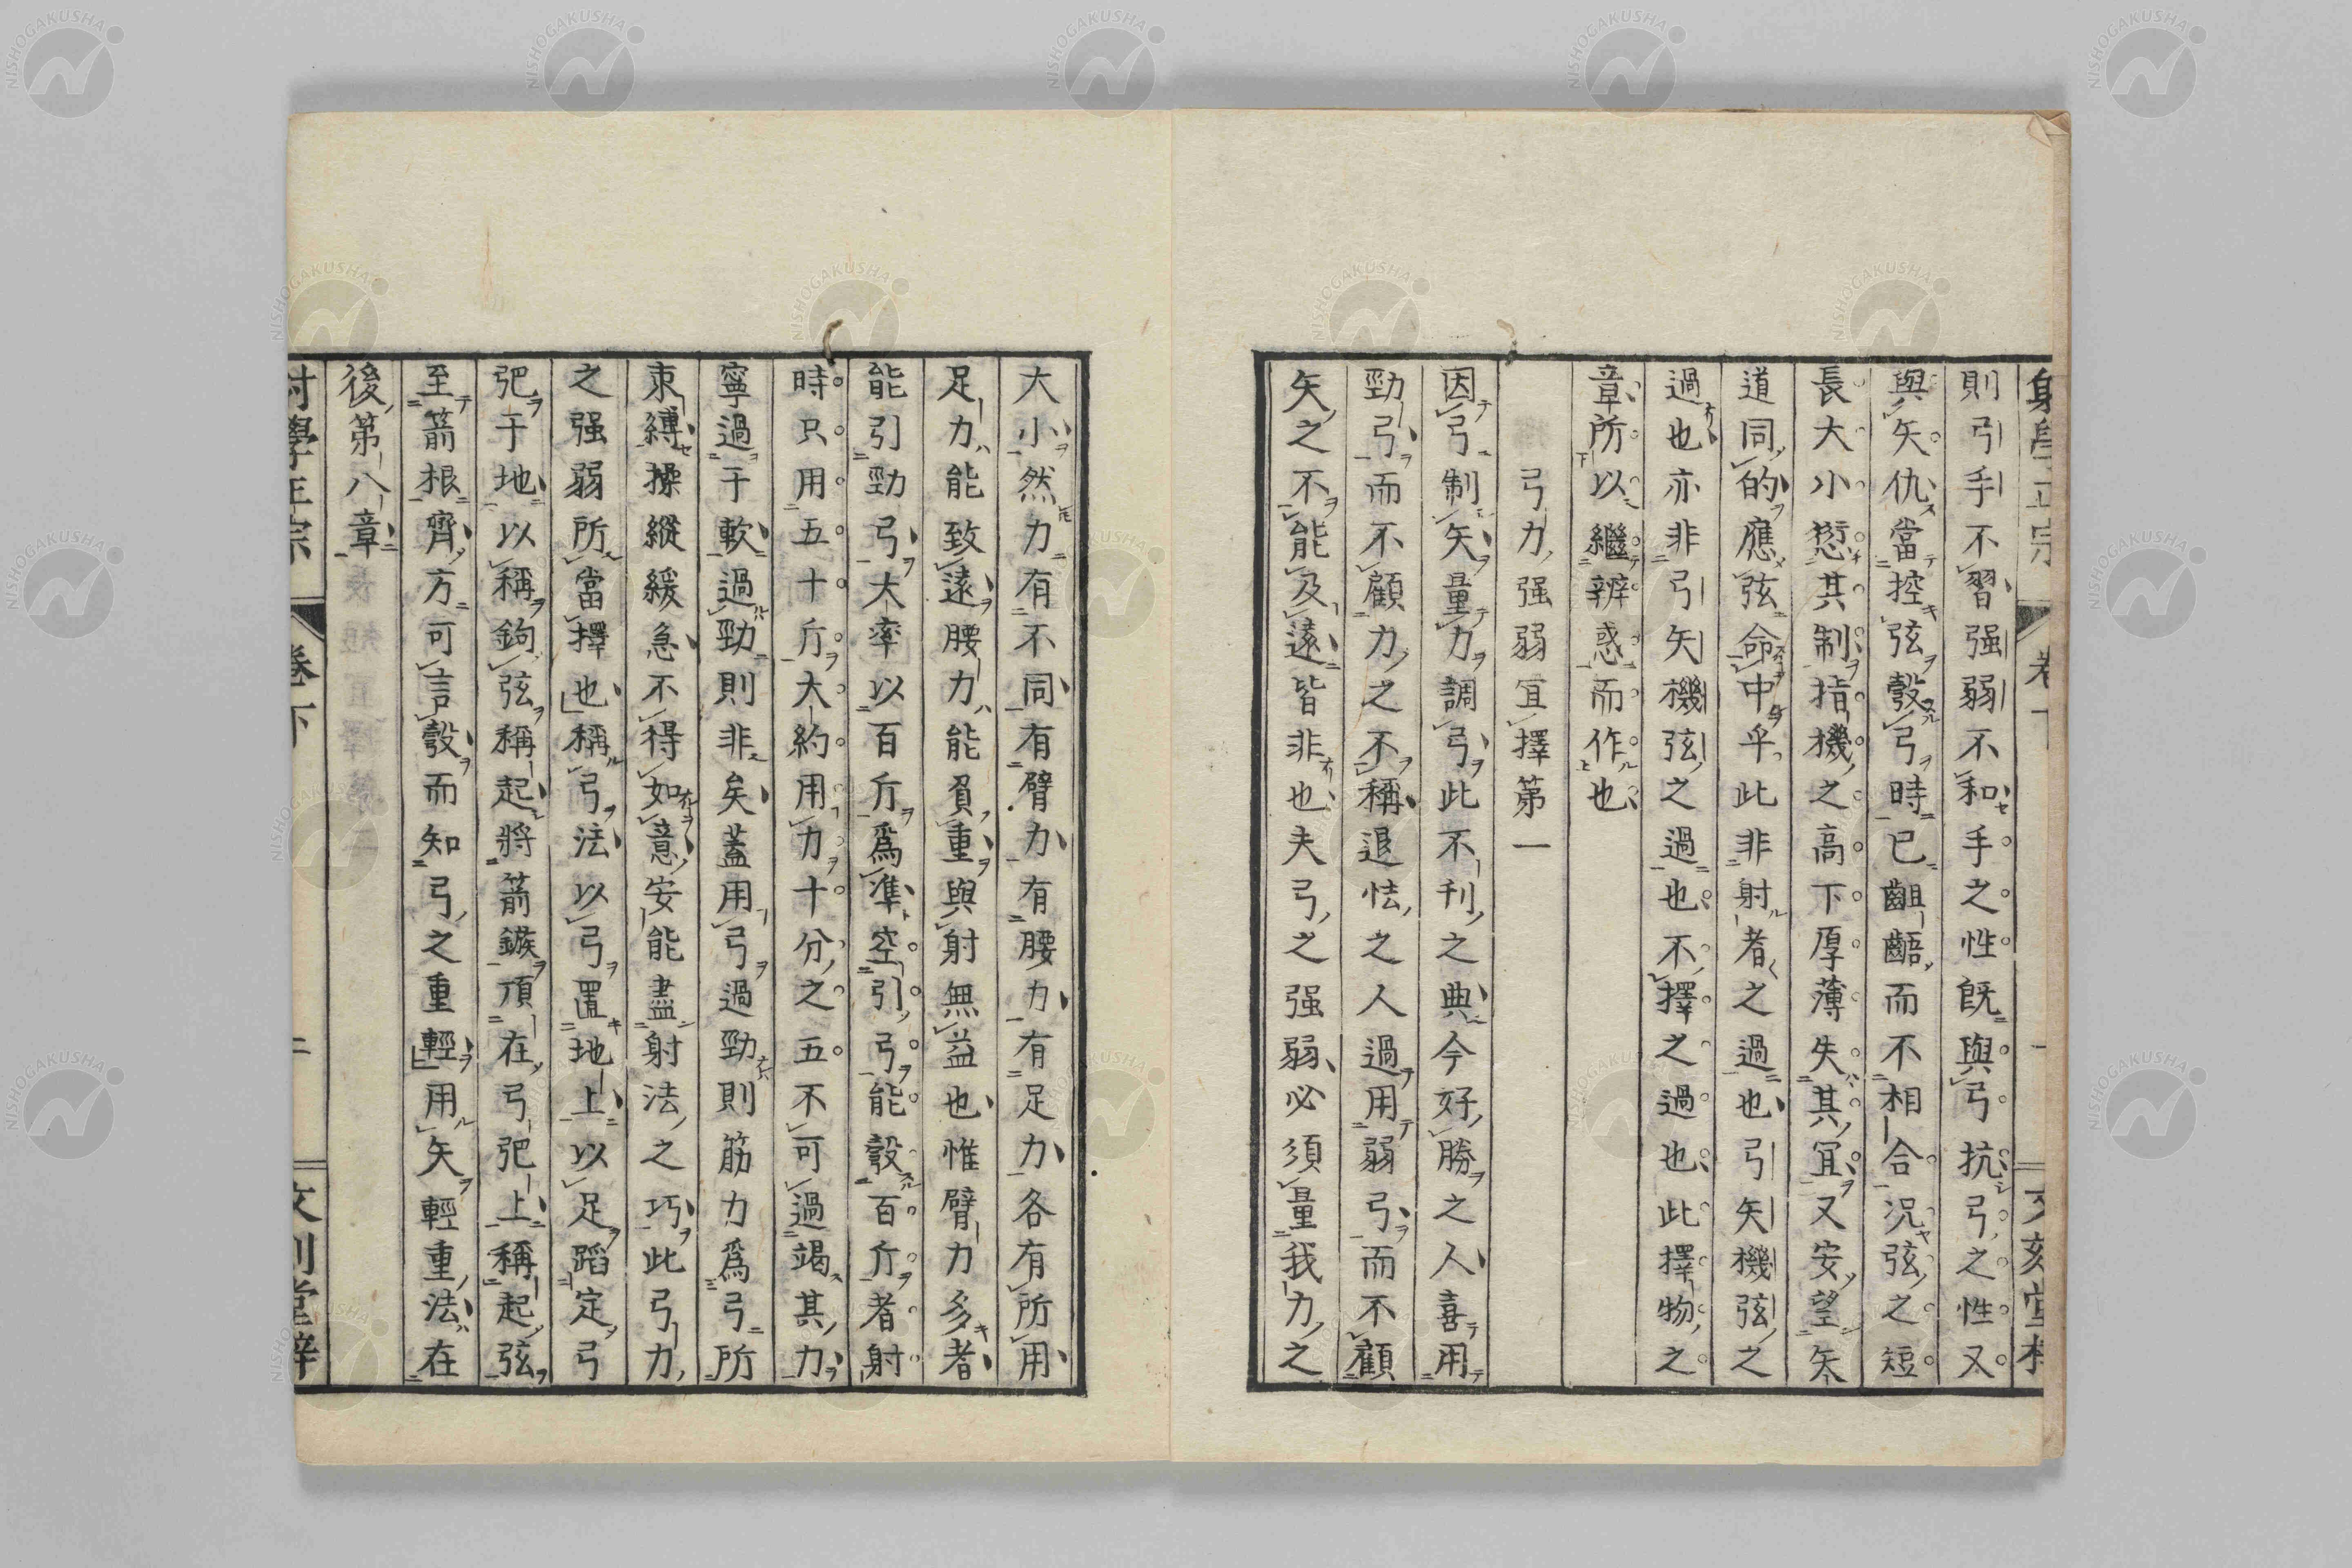 則引手不習强弱不和手之性旣與弓抗弓之性又
與矢仇當控弦彀弓時已齟齬而不相合况弦之短
長大小愆其制指機之高下厚薄失其冝又安望矢
道同的應弦命中乎此非射者之過也引矢機弦之
過也亦非引矢機弦之過也不擇之過也此擇物之
章所以繼辨惑而作也
弓力强弱冝擇第一
因弓制矢量力調弓此不刊之典今好勝之人喜用
勁弓而不顧力之不稱退怯之人過用弱弓而不顧
矢之不能及遠皆非也夫弓之强弱必須量我力之
大小然力有不同有臂力有腰力有足力各有所用
足力能致遠腰力能負重與射無益也惟臂力多者
能引勁弓大率以百斤爲凖空引弓能彀百斤者射
時只用五十斤大約用力十分之五不可過竭其力
寧過于軟過勁則非矣蓋用弓過勁則筋力爲弓所
束縛操縱緩急不得如意安能盡射法之巧此弓力
之强弱所當擇也稱弓法以弓置地上以足蹈定弓
弝于地以稱鉤弦稱起將箭鏃頂在弓弝上稱起弦
至箭根齊方可言彀而知弓之重輕用矢輕重法在
後第八章
射學正宗 卷下 二
NISHOGAKUSHA